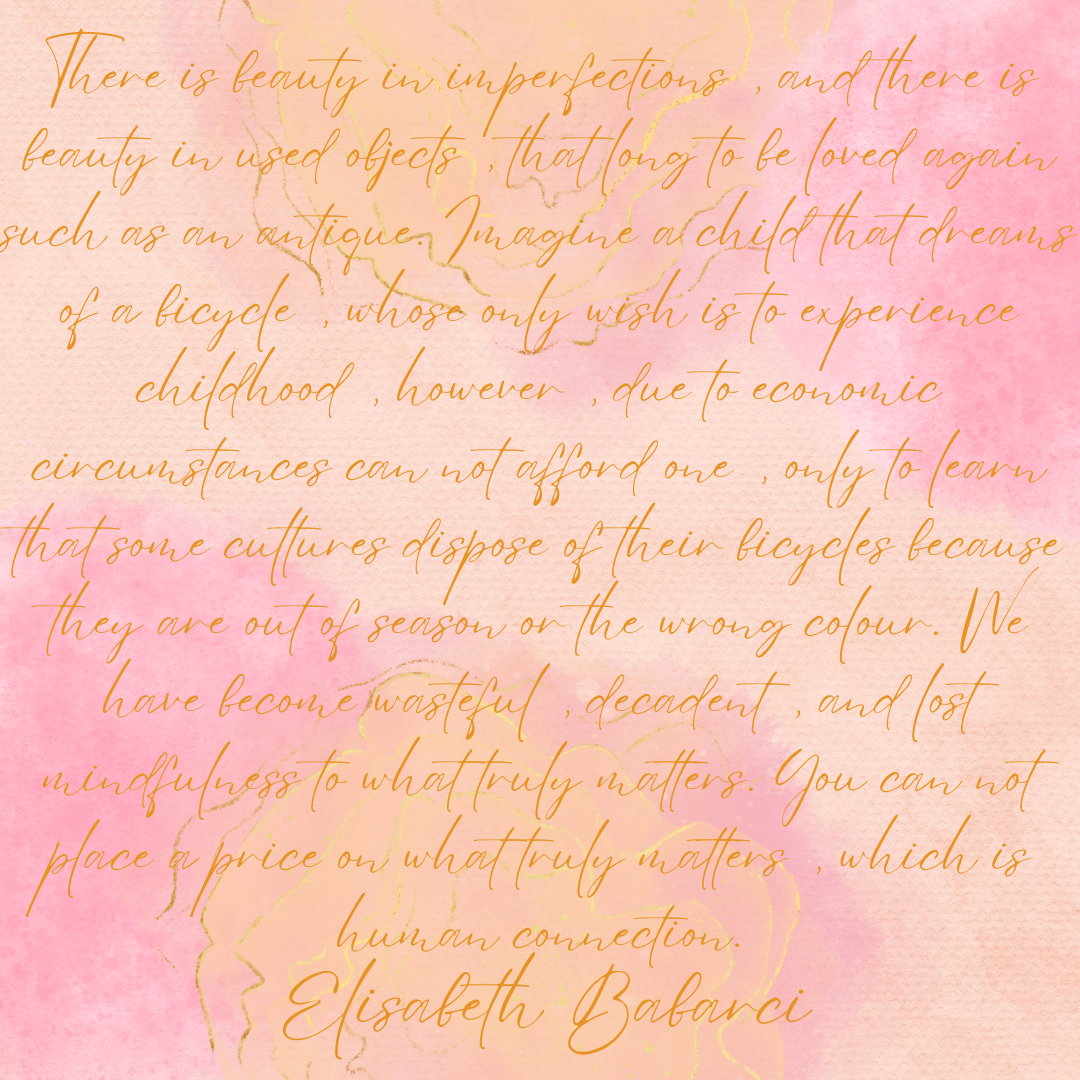 There is beauty in imperfections , and there is
beauty in used objects , that long to be loved again
such as an antique. Imagine a child that dreams
of a bicycle , whose only wish is to experience
childhood , however , due to economic
circumstances can not afford one , only to learn
that some cultures dispose of their bicycles because
they are out of season or the wrong colour. We
have become wasteful , decadent , and lost
mindfulness to what truly matters. You can not
place a price on what truly matters , which is
human connection.
Elisabeth Babarci